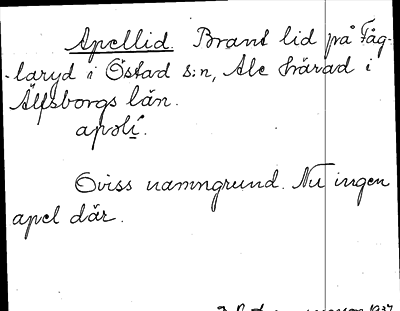 Apellid. Brant lid på Fåg-
-laryd i Östad s:n, Ale härad i
Älfsborgs län.
apəli.
Oviss namngrund. Nu ingen
apel där.
1937